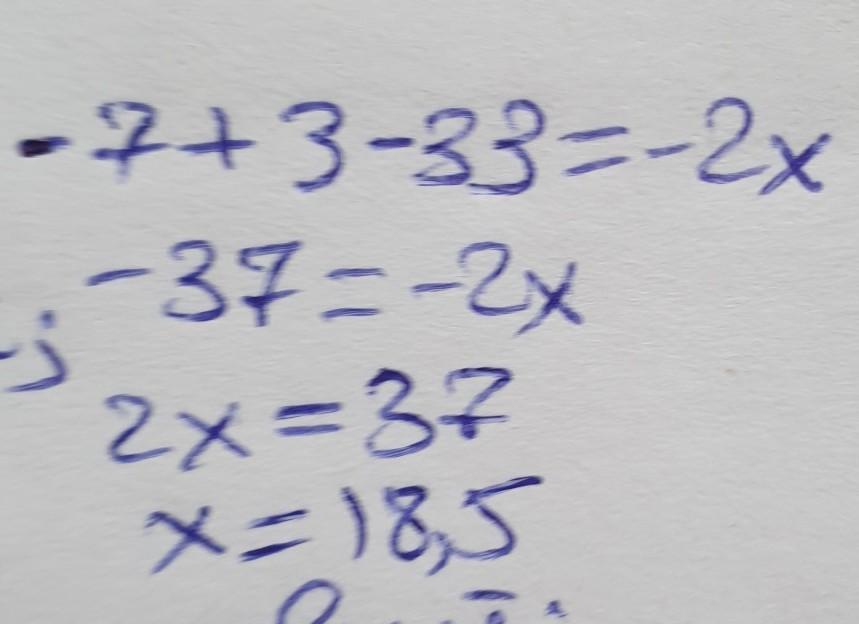 -7+3-33=-2x
-37=-2x
2x=37
x=18,5